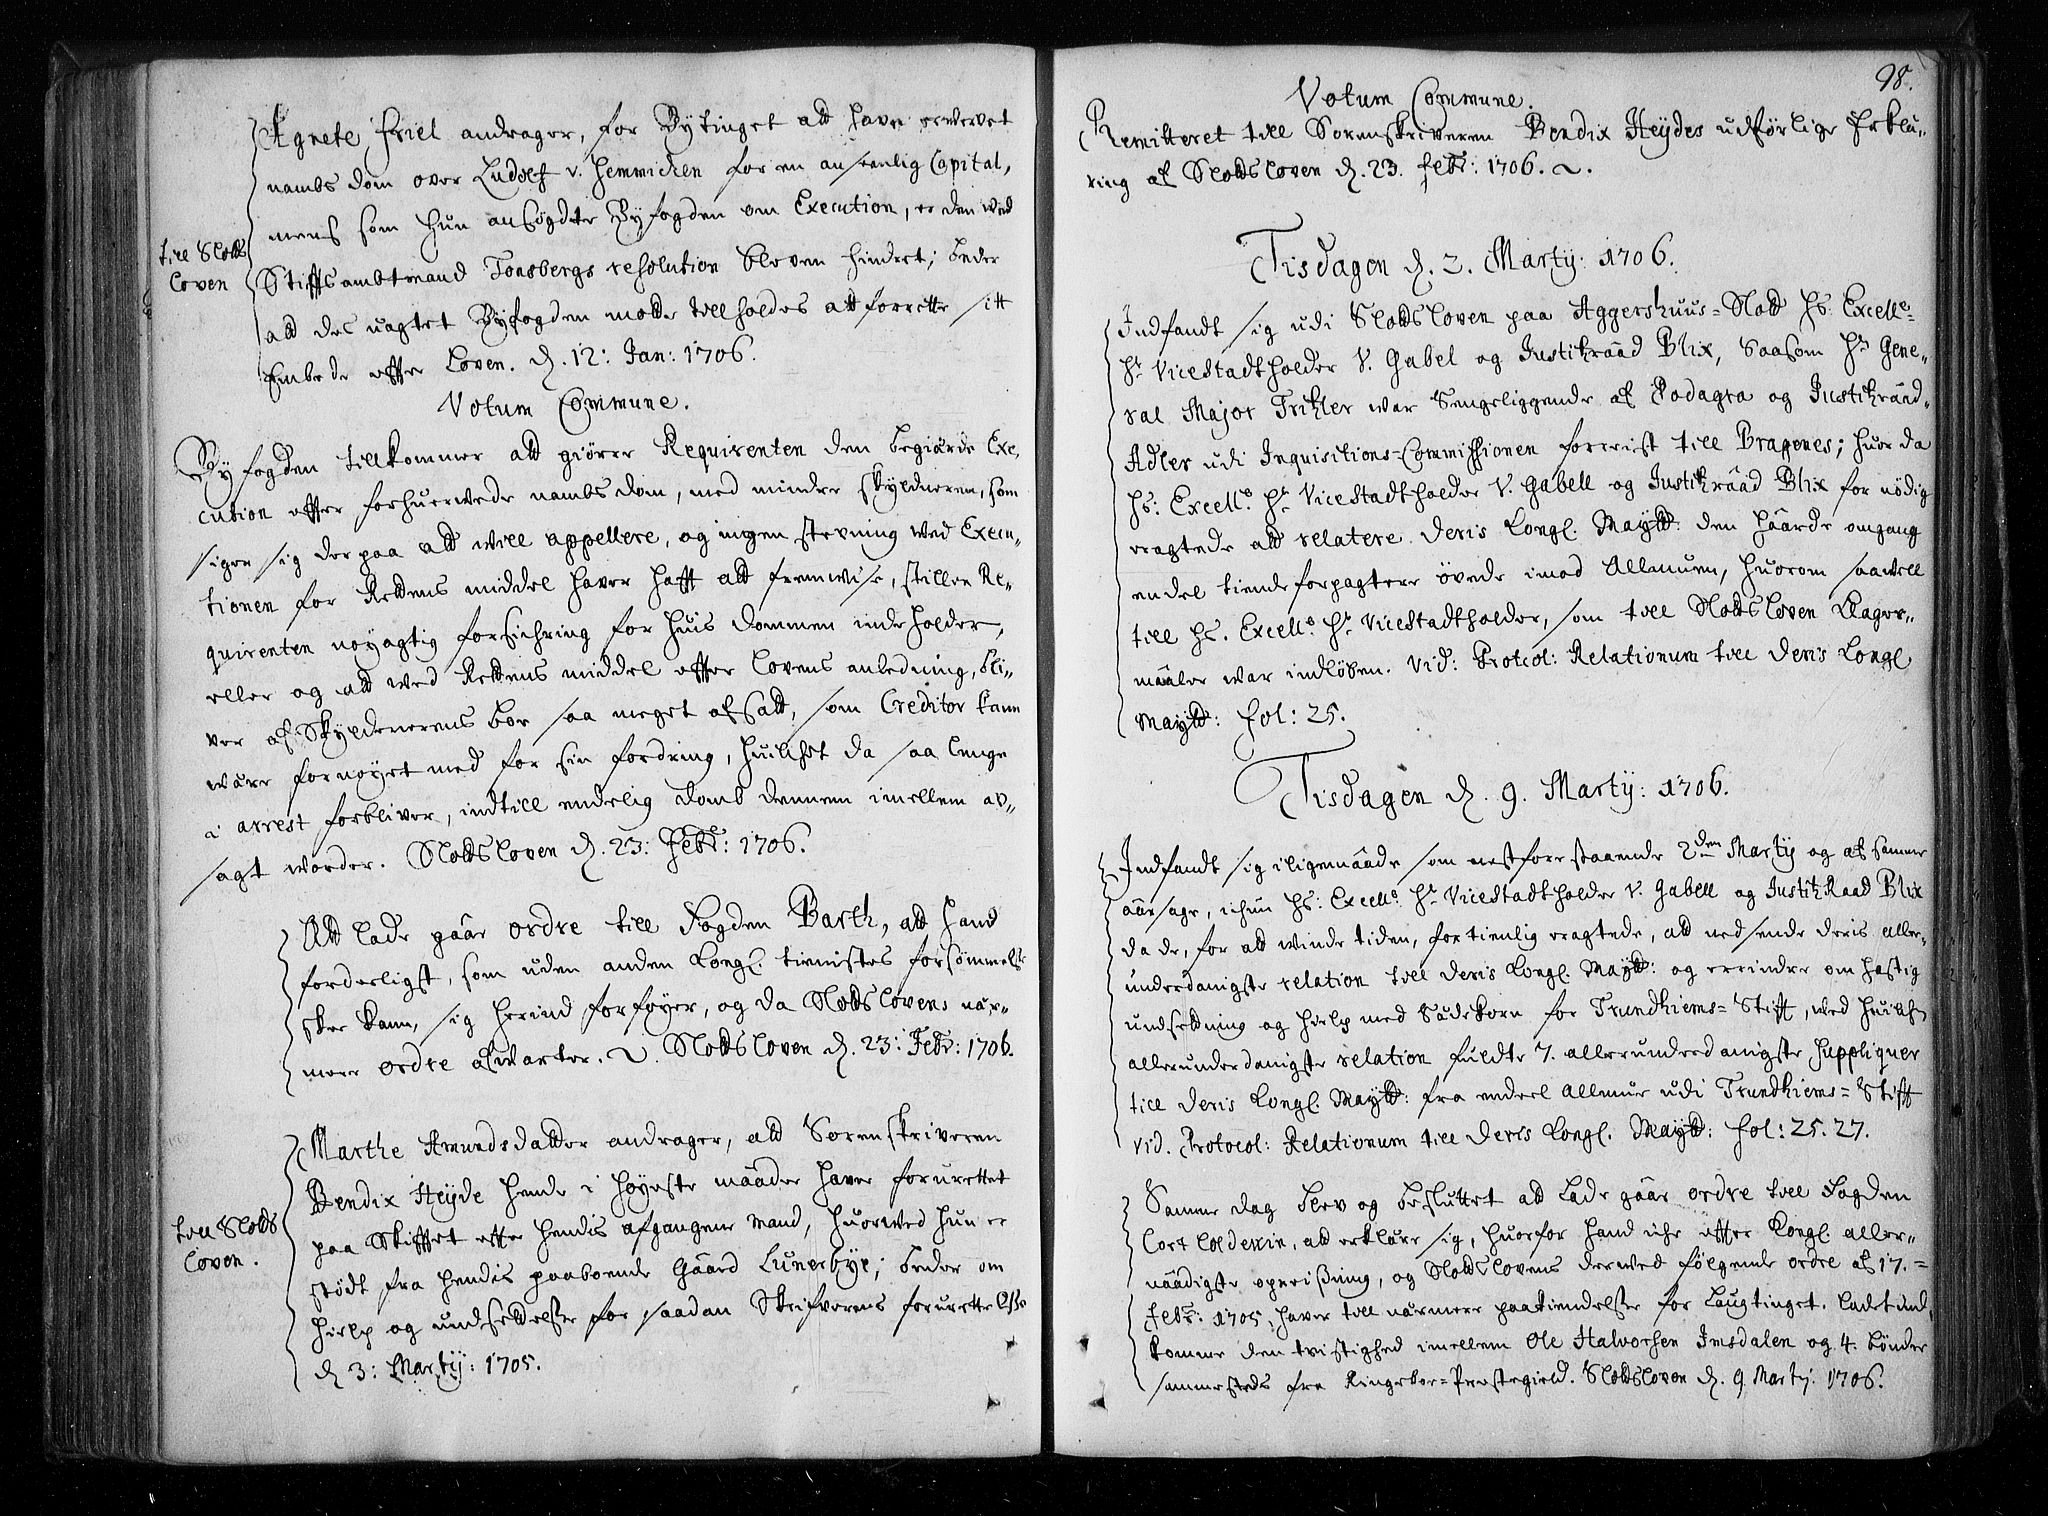 Agnete Friel andrager, for Bytinget att have erwervet
nambs dom over Ludolf v. Hemmichen for en anseenlig Capital,
mens som hun ansøgdte Byfogden om Execution, er den wed
till Slotts
Loven
Stiftsambtmand Tonsbergs resolution bleven hindret; beder
att des uagtet Byfogden motte tillholdes att forrette sitt
Embede efter Loven. d. 12: Jan: 1706.
Votum Commune.
Byfogden tillkommer att giørre Requirenten den begiærde Exe,
cution effter forhuerwede nambsdom, med mindre skyldneren, som
siger sig der paa att will appellere, og ingen stevning wed Execu,,
tionen for Rettens middel haver hafft att fremwise, stiller Re,,
quirenten nøyagtig forsichring for huis dommen inde holder,
eller og att wed Rettens middel effter Lovens anledning, bli,,
ver af Skyldenerens boe saa meget afsatt, som Creditor kann
være fornøyet med for sin fordring, huilchet da saa lenge
i arrest forbliver, indtill endelig domb dennem imellem af,,
sagt worder. Slottsloven d. 23: Febr: 1706.
Att lade gaar ordre till Fogden Barth, att hand
forderligst, som uden anden Kongl. tienistes forsømmelse
skee kann, sig herind forføyer, og da Slottslovens nær,,
mere ordre afwarter. Slottsloven d. 23: Febr: 1706.
Marthe Amundsdatter andrager, att Sorenskriveren
Bendix Heyde hende i høyeste maader haver forurettet
till Slotts
Loven.
paa Skifftet effter hendis afgangene mand, huorwed hun er
stødt fra hendis paaboende Gaard Lunerbye; beder om
hielp og undsettelse for saadan Skrifverens forurettelse
d. 3: Martij: 1705.
98.
Votum Commune.
Remitteret till Sorenskriveren Bendix Heydes udførlige Erklæ,,
ring af Slottsloven d. 23. Febr: 1706.
Tisdagen d. 2. Martij: 1706.
Indfandt sig udi Slottsloven paa Aggershuus-Slott Hs: Excell:
Hr. ViceStadtholder v. Gabel og Justitzraad Blix, saasom Hr Gene,,
ral Major Tritzler war Sengeliggende af Podagra og Justitzraad
Adler udi Inquisitions-Commissionen forreist till Bragenes; huor da
Hs: Excell: Hr. ViceStadtholder v. Gabell og Justitzraad Blix for nödig
eragtede att relatere deris Kongl. Maytt: den haarde omgang
endel tiendeforpagtere øvede imod Allmuen, huorom saawell
till Hs. Excell: Hr. ViceStadtholder, som till Slottsloven Klager,,
maaler war indløben. Vid: Protcol: Relationum till Deris Kongl
Maytt: fol: 25.
Tisdagen d. 9. Martij: 1706.
Indfandt sig iligemaade som nestforestaaende 2den Martij og af samme
aarsage, ichun Hs: Excell: Hr. ViceStadtholder v. Gabell og JustitzRaad Blix
da de, for att winde tiden, fortienlig eragtede, att nedsende deris aller,
underdanigste relation till Deris Kongl. Maytt: og erindre om hastig
undsetning og hielp med Sædekorn for Trundhiems-Stift, wed huilchen
allerunderdanigste relation fuldte 7. allerunderdanigste Suppliquer
till Deris Kongl. Maytt: fra endeel Allmue udi Trundhiems-Stifft
vid. Protocol: Relationum till Deris Kongl. Maytt: fol: 25.27.
Samme dag blev og besluttet att lade gaar ordre till Fogden
Cort Coldewin, att erklære sig, huorfor hand iche effter Kongl. aller,,
naadigste operißning, og Slottslovens derwed følgende ordre af 17.
Febr: 1705, haver till nærmere paakiendelse for Laugtinget. ladet ind
komme den tvistighed imellem Ole Halvorsen Imsdalen og 4. bønder
sammesteds fra Ringeboe-Prestegield. Slottsloven d. 9. Martij: 1706.